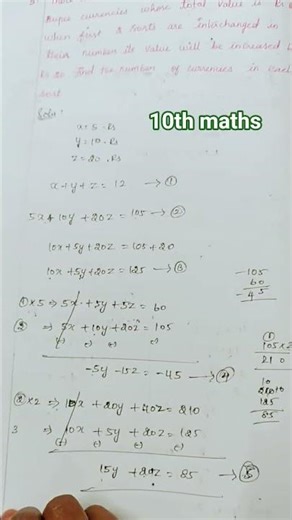 Rupee currencies whose total value is Rs
when first 2 sorts are interchanged in
their number its value will be increased b
Rs 20. Find the number of currencies in each
sort
Soln:
10th maths
x = 5 . Rs
y = 10 . Rs
z = 20 . Rs
x+y+z = 12 → ①
5x+10y+20z = 105 → ②
10x+5y+20z = 105+20
10x+5y+20z = 125 → ③
-105
60
-45
①×5 ⇒ 5x + 5y + 5z = 60
② ⇒ 5x + 10y + 20z = 105
(-) (-) (-) (-)
-5y -15z = -45 → ④
105×2
210
②×2 ⇒ 10x + 20y + 40z = 210
3 ⇒ 10x + 5y + 20z = 125
(-) (-) (-) (-)
125
85
15y + 20z = 85 → ⑤